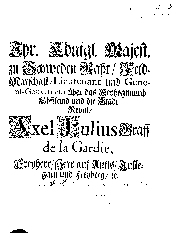 Ihr. Königl. Majest.
zu Schweden Raht / Feld-
Marschall-Lieutenant und Gene-
ral-Gouverneur über das Hertzogthumb
Ehstland und die Stadt
Reval /
Axel Julius Graff
de la Gardie,
Freyherr / Herr auf
und &c.